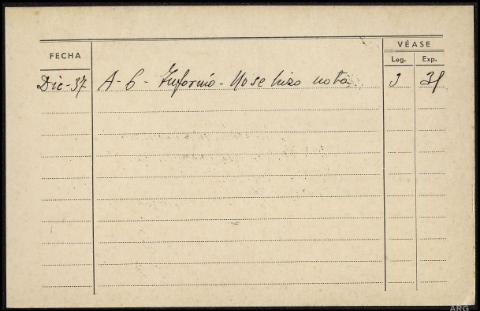 VÉASE
FECHA
Leg. Exp.
Dic-37 A-6- Informó - No se hizo nota. 3 31
ARG